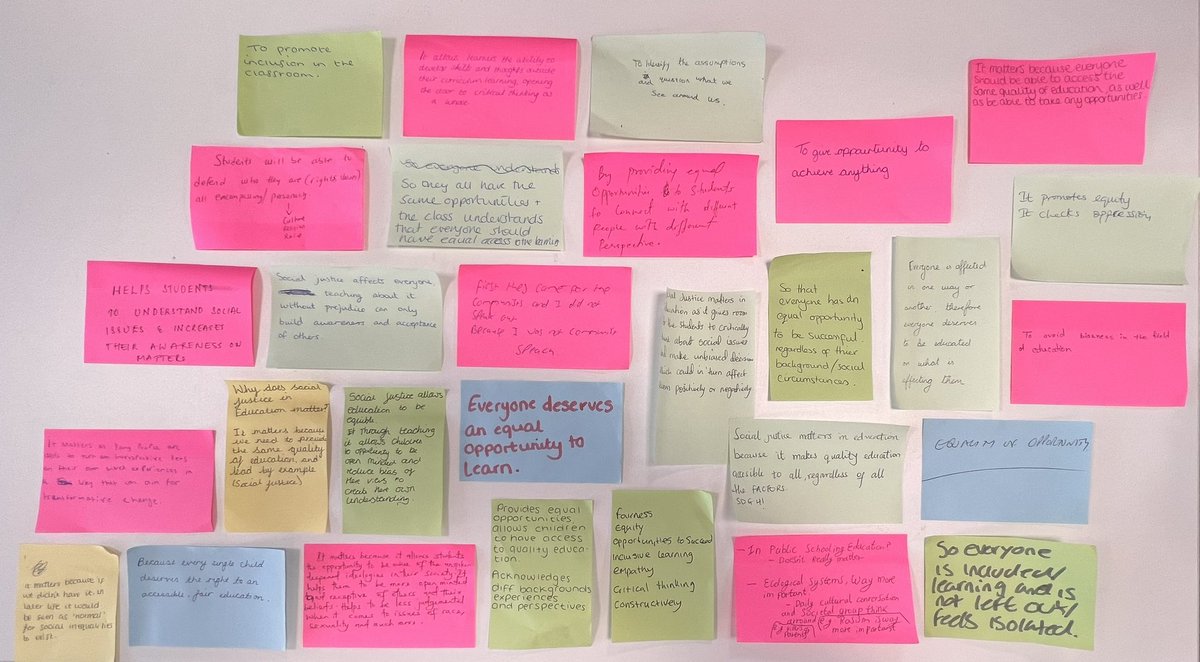 To promote
inclusion in the
classroom.
It allows learners the ability to
develop skills and thoughts outside
their curriculum learning, opening
the door to critical thinking as
a whole
To Identify the assumptions
and question what we
see around us.
It matters because everyone
should be able to access the
same quality of education, as well
as be able to take any opportunities.
Students will be able to
defend who they are (rights)
all encompassing/
Culture
Religion
Race
So everyone understands
So they all have the
same opportunities +
the class understands
that everyone should
have equal access to the learning
By providing equal
Opportunities to students
to connect with different
people with different
Perspective.
To give oppourtunity to
achieve anything
It promotes equity
It checks oppression
HELPS STUDENTS
TO UNDERSTAND SOCIAL
ISSUES & INCREASES
THEIR AWARENESS ON
MATTERS
Social justice affects everyone
teaching about it
without prejudice can only
build awareness and acceptance
of others
First they came for the
Communists and I did not
Speak out
Because I was not Communist
Justice matters in
as it gives room
the students to critically
about social issues
make unbiased decision
which could in turn affect
positively or negatively
So that
everyone has an
equal opportunity
to be successful
regardless of thier
background/social
circumstances.
Everyone is affected
in one way or
another therefore
everyone deserves
to be educated
on what is
affecting them
To avoid biasness in the field
of education
It matters as young people are
able to turn an lens
on their own experiences in
a way that can aim for
transformative change.
Why does social
justice in
Education matter?
It matters because
we need to provide
the same quality
of education, and
lead by example
(social justice)
Social justice allows
education to be
equible
It through teaching
it allows children
to oppertunity to be
open minded and
reduce bias of
their views to
create their own
understanding.
Everyone deserves
an equal
opportunity to
learn.
Social justice matters in education
because it makes quality education
accesible to all, regardless of all
the FACTORS
SDG 4!
EQUALITY OF OPPORTUNITY
it matters because is
we didn't have it, in
later life it would
be seen as 'normal'
for social inequalities
to exist.
Because every single child
deserves the right to an
accessible, fair education.
It matters because it allows students
the opportunity to be aware of the
ideologies in their society. It
helps them to be more open minded
and receptive of others and their
beliefs. Helps to be less judgmental
when it comes to issues of race,
sexuality and much more.
Provides equal
opportunities
allows children
to have access
to quality educa-
tion.
Acknowledges
diff backgrounds
experiences
and perspectives
Fairness
Equity
opportunities to succeed
inclusive learning
empathy
Critical thinking
constructively
- In Public Schooling Education?
- Doesn't Really matter
- Ecological systems, way more
important
- Daily cultural conversation
and societal group think
around (e.g Racism is way
more important
So everyone
is included
learning and is
not left out/
feels isolated.